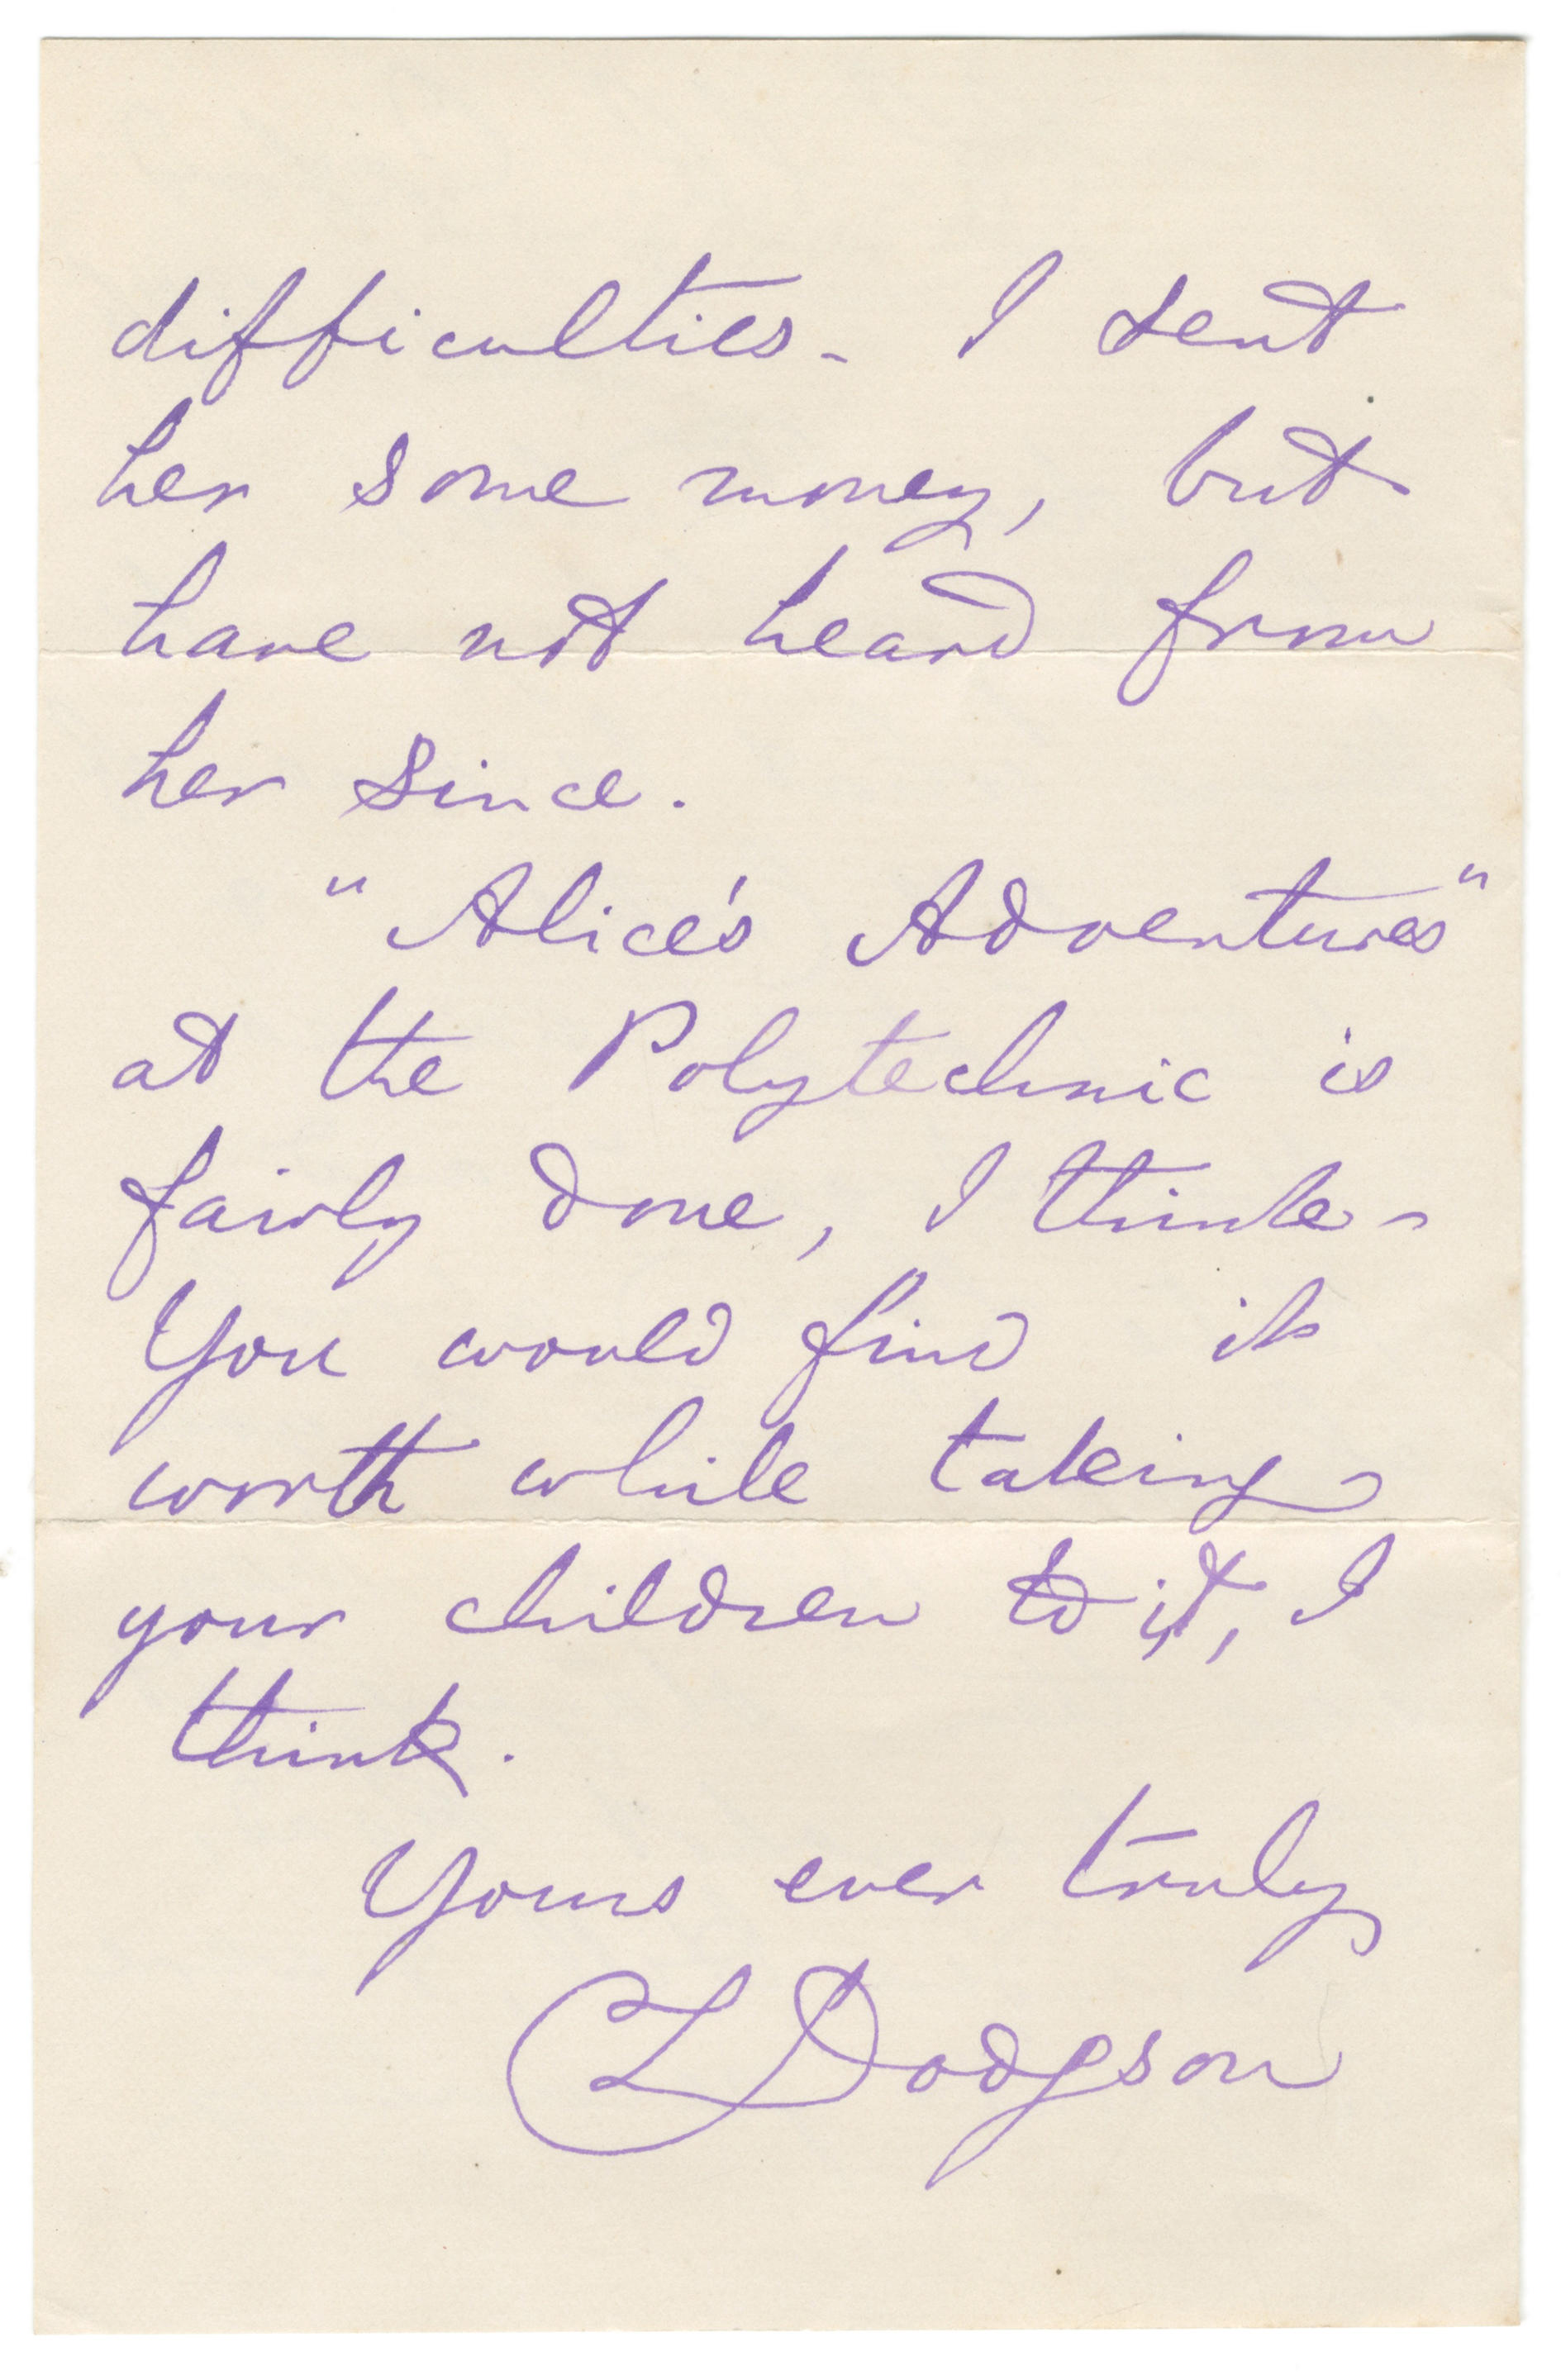 difficulties - I sent
her some money, but
have not heard from
her since.
"Alice's Adventures"
at the Polytechnic is
fairly done, I think -
You would find it
worth while taking
your children to it, I
think.
Yours ever truly
CLDodgson